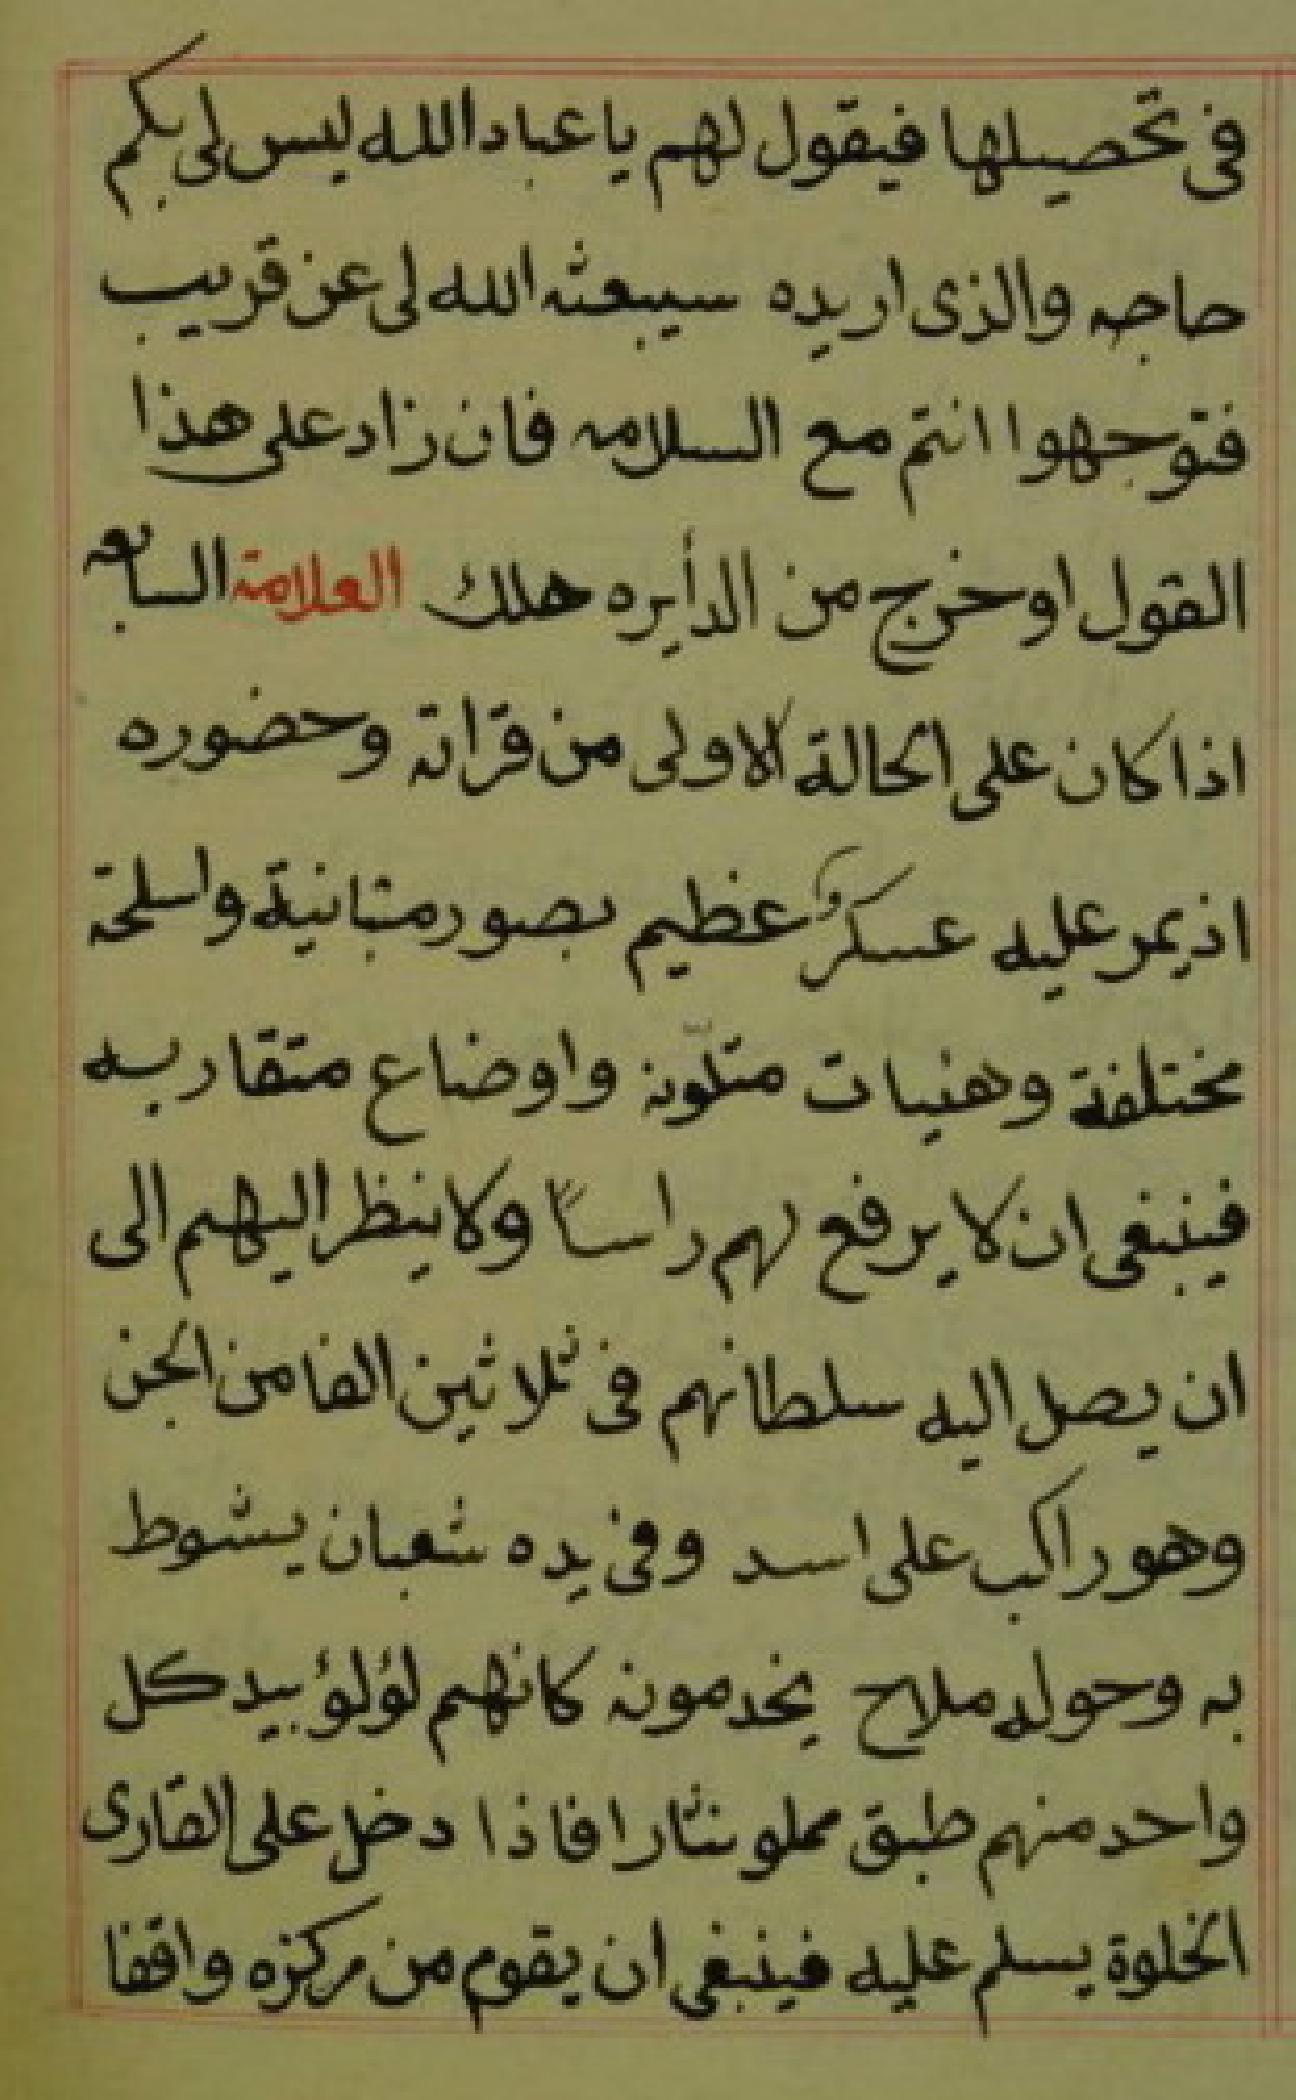 فى تحصيلها فيقول لهم يا عباد الله ليس لى بكم
حاجه والذى اريده سيبعثه الله لى عن قريب
فتوجهوا انتم مع السلامه فان زاد على هذا
القول او خرج من الدأيره هلك العلامة السابعه
اذا كان على الحالة الاولى من قراته وحضوره
اذ يمر عليه عسكر عظيم بصور متباينة واسلحة
مختلفة وهئيات متلّونه واوضاع متقاربه
فينبغى ان لا يرفع لهم راساً ولا ينظر اليهم الى
ان يصل اليه سلطانهم فى ثلاثين الفا من الجن
وهو راكب على اسد وفى يده ثعبان يشوط
به وحوله ملاح يخدمونه كانهم لؤلؤ بيد كل
واحد منهم طبق مملو نثارا فاذا دخل على القارى
الخلوة يسلم عليه فينبغى ان يقوم من مركزه واقفا